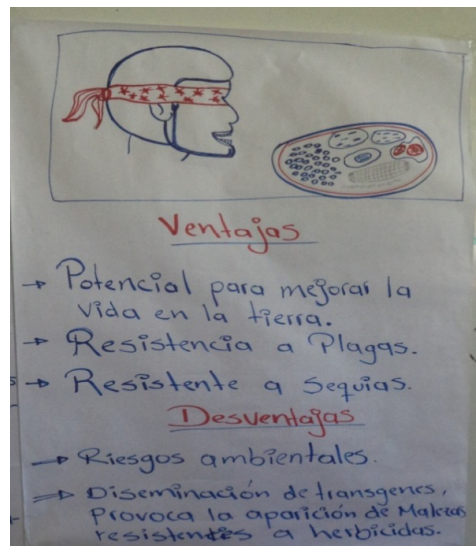 Ventajas
→ Potencial para mejorar la
vida en la tierra.
→ Resistencia a Plagas.
→ Resistente a sequias.
Desventajas
→ Riesgos ambientales.
⇒ Diseminación de transgenes,
provoca la aparición de Malezas
resistentes a herbicidas.